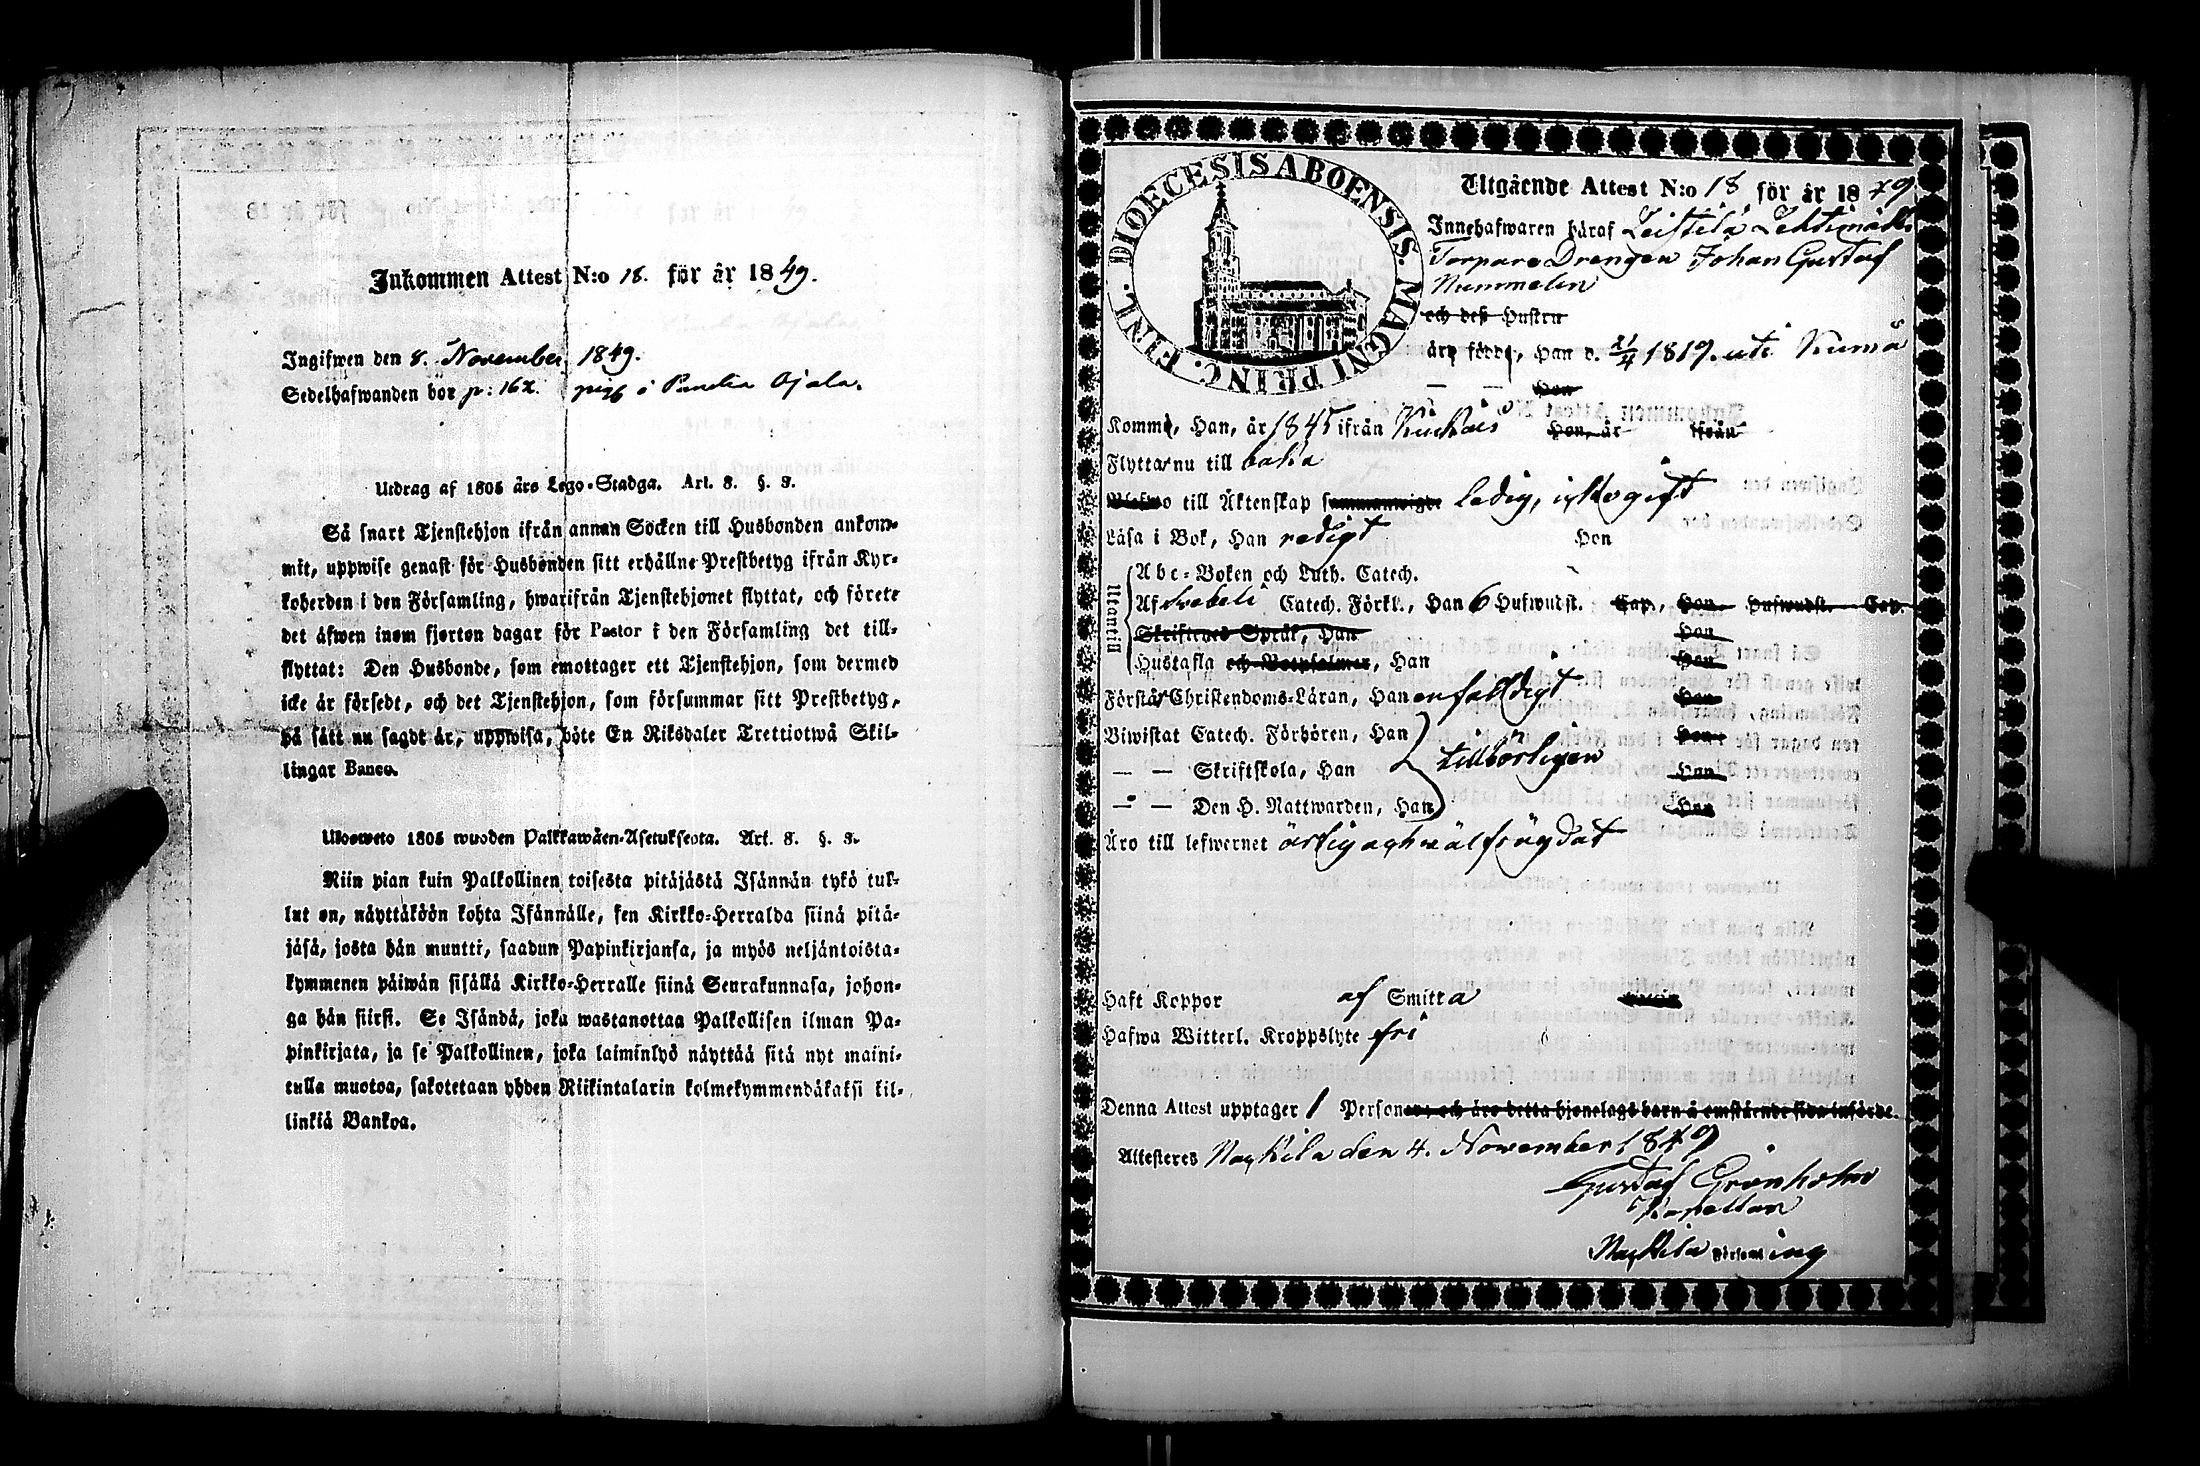 Inkommen Attest N:o 18. för år 1849.
Ingifwen den 8. November 1849.
Sedelhafwanden bor p: 162. i Ojala.
Utdrag af 1805 års Lego-Stadga. Art. 8. §. 3.
Så snart Tjenstehjon ifrån annan Socken till Husbonden ankom-
mit, uppwise genast för Husbonden sitt erhållne Prestbetyg ifrån Kyr-
koherden i den Församling, hwarifrån Tjenstehjonet flyttat, och förete
det äfwen inom fjorton dagar för Pastor i den Församling det till-
flyttat: Den Husbonde, som emottager ett Tjenstehjon, som dermed
icke är försedt, och det Tjenstehjon, som försummar sitt Prestbetyg,
på sätt nu sagdt är, uppwisa, böte En Riksdaler Trettiotwå Skil-
lingar Banco.
Ulosweto 1805 wuoden Palkkawäen-Asetuksesta. Art. 8. §. 3.
Niin pian kuin Palkollinen toisesta pitäjästä Isännän tykö tul-
lut on, näyttäköön kohta Isännälle, sen Kirkko-Herralda siinä pitä-
jäsä, josta hän muutti, saadun Papinkirjansa, ja myös neljäntoista-
kymmenen päiwän sisällä Kirkko-Herralle siinä Seurakunnasa, johon-
ga hän siirsi. Se Isändä, joka wastanottaa Palkollisen ilman Pa-
pinkirjata, ja se Palkollinen, joka laiminlyö näyttää sitä nyt maini-
tulla muotoa, sakotetaan yhden Riikintalarin kolmekymmendäkaksi kil-
linkiä Bankoa.
DIOECESIS ABOENSIS. MAGNI PRINC. FINL.
Utgående Attest N:o 18 för år 1849
Innehafwaren häraf Leistilä
Torpare Drengen Johan Gustaf
Nummelin
och deß Hustru
äro födde, Han d. 21/4 1819. uti Kumå
— — Hon
Komme, Han, år 1845 ifrån Hon, år ifrån
Flytta nu till baka
till Äktenskap sammanwigde ledig, icke gift
Läsa i Bok, Han redigt Hon
Utantill
Abc-Boken och Luth. Catech.
Af Svebeli Catech. Förkl., Han 6 Hufwudst. Cap., Hon Hufwudst. Cap.
Skriftenes Språk, Han Hon
Hustafla och Botpsalmer, Han Hon
Förstår Christendoms-Läran, Han enfaldigt Hon
Biwistat Catech. Förhören, Han Hon
— — Skriftskola, Han tillbörligen Hon
— — Den H. Nattwarden, Han Hon
Äro till lefwernet ärlig och wälfrägdat
Haft Koppor af Smitta
Hafwa Witterl. Kroppslyte fri
Denna Attest upptager 1 Personer, och äro detta hjonelags barn å omstående sida införde.
Attesteres Nackila den 4. November 1849
Gustaf Grönholm
Kapellan
Nackila Församling